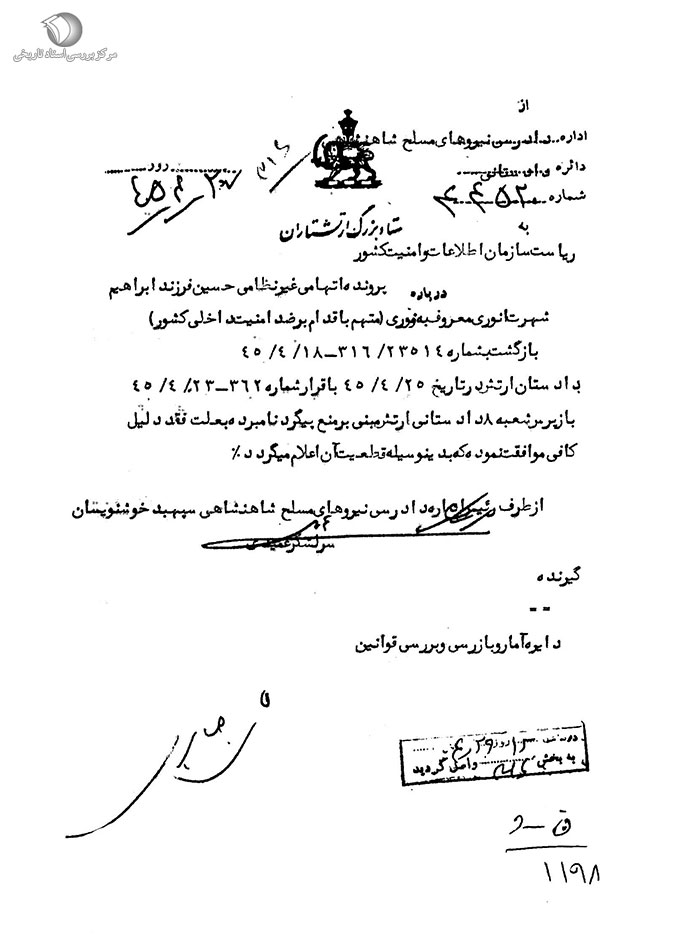 مرکز بررسی اسناد تاریخی
از
اداره دادرسی نیروهای مسلح شاهنشاهی
دائره دادستانی
روز
۳۱۶
شماره ۴۴۵۲
ستاد بزرگ ارتشتاران
به
ریاست سازمان اطلاعات و امنیت کشور
درباره پرونده اتهامی غیرنظامی حسین فرزند ابراهیم
شهرت انوری معروف به نوری (متهم باقدام برضد امنیت داخلی کشور)
بازگشت بشماره ۲۳۵۱۴/ ۳۱۶-۱۸/ ۴/ ۴۵
دادستان ارتش در تاریخ ۲۵/ ۴/ ۴۵ باقرار شماره ۳۶۲-۲۳/ ۴/ ۴۵
بازپرس شعبه ۸ دادستانی ارتش مبنی بر منع پیگرد نامبرده بعلت فقد دلیل
کافی موافقت نموده که بدینوسیله قطعیت آن اعلام میگردد ٪
از طرف رئیس اداره دادرسی نیروهای مسلح شاهنشاهی سپهبد خوشنویسان
سرلشگر
گیرنده
--
دایره آمار و بازرسی و بررسی قوانین
روز
به بخش ۳۱۶ واصل گردید
۱۱۹۸